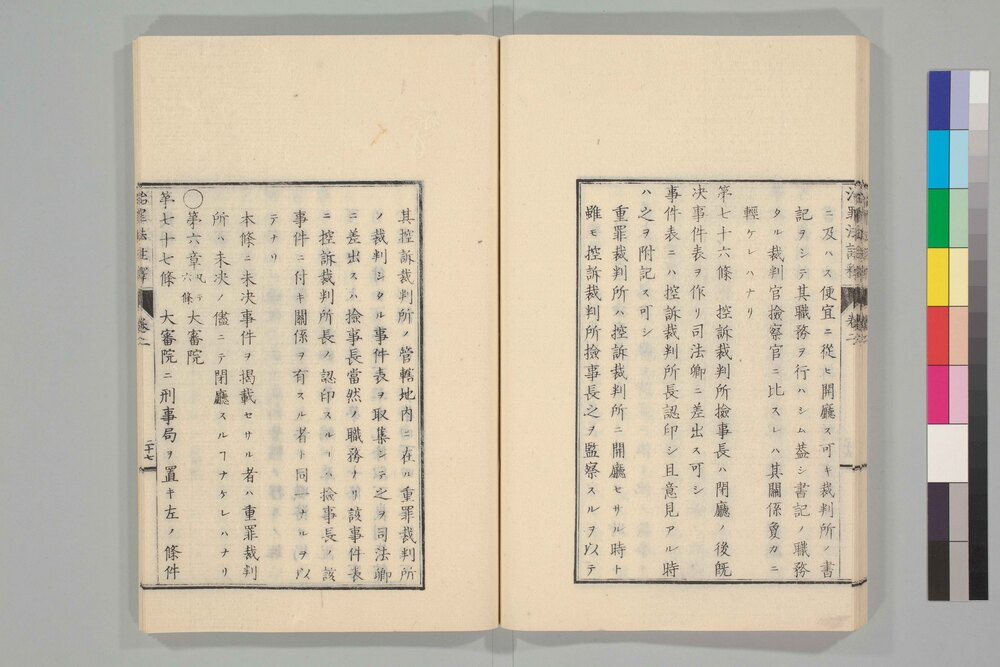 治罪法註釋 卷之二
ニ及ハス便宜ニ從ヒ開廳ス可キ裁判所ノ書
記ヲシテ其職務ヲ行ハシム葢シ書記ノ職務
タル裁判官撿察官ニ比スレハ其關係夐カニ
輕ケレハナリ
第七十六條 控訴裁判所撿事長ハ閉廳ノ後既
决事件表ヲ作リ司法卿ニ差出ス可シ
事件表ニハ控訴裁判所長認印シ且意見アル時
ハ之ヲ附記ス可シ
重罪裁判所ハ控訴裁判所ニ開廳セサル時ト
雖モ控訴裁判所撿事長之ヲ監察スルヲ以テ
其控訴裁判所ノ管轄地内ニ在ル重罪裁判所
ノ裁判シタル事件表ヲ取集シテ之ヲ司法卿
ニ差出スハ撿事長當然ノ職務ナリ該事件表
ニ控訴裁判所長ノ認印スルハ撿事長ノ該
事件ニ付キ關係ヲ有スル者ト同一ナルヲ以
テナリ
本條ニ未决事件ヲ揭載セサル者ハ重罪裁判
所ハ未决ノ儘ニテ閉廳スルヿナケレハナリ
◯第六章 凡テ六條 大審院
第七十七條 大審院ニ刑事局ヲ置キ左ノ條件
治罪法註釋 卷之二 二十七